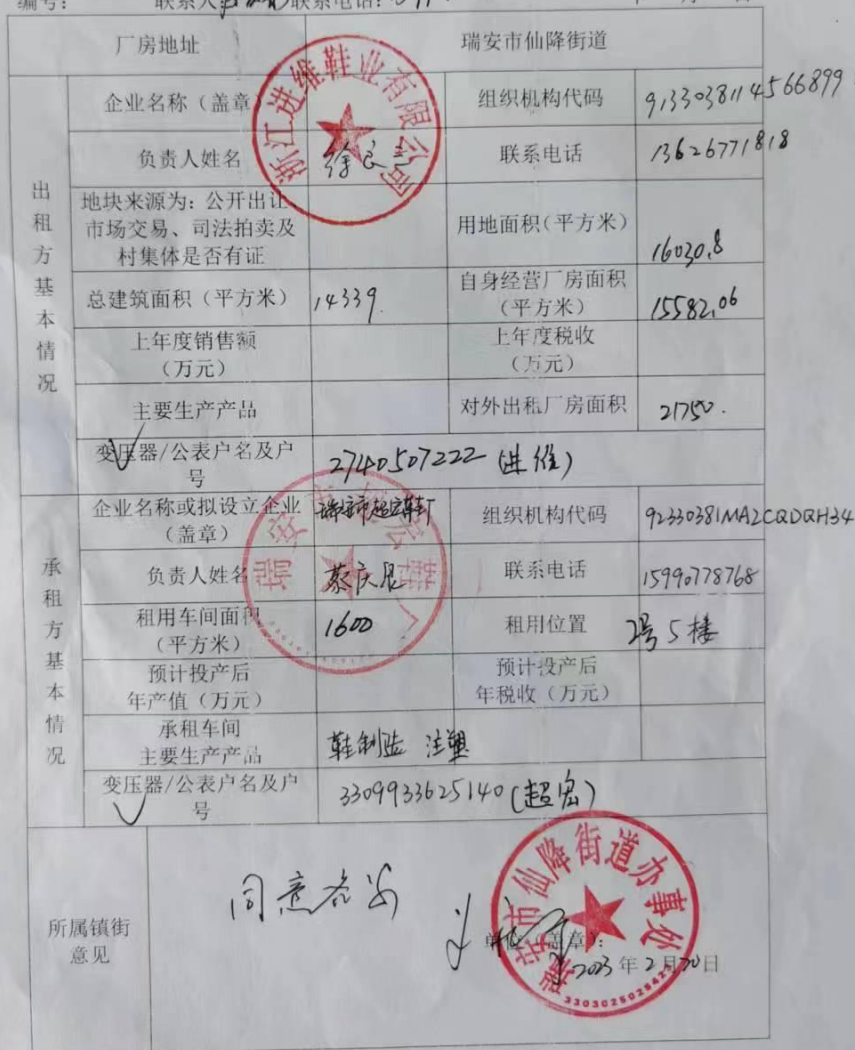 编号： 联系人： 联系电话：
厂房地址 瑞安市仙降街道
出租方基本情况
企业名称（盖章） 组织机构代码 913303811456 6899
浙江进维鞋业有限公司
负责人姓名 徐良 联系电话 13626771818
地块来源为：公开出让
市场交易、司法拍卖及
村集体是否有证
用地面积（平方米） 16030.8
总建筑面积（平方米） 14339.
自身经营厂房面积
（平方米） 15582.06
上年度销售额
（万元）
上年度税收
（万元）
主要生产产品 对外出租厂房面积 21750.
变压器/公表户名及户
号 2740507222（进维）
承租方基本情况
企业名称或拟设立企业
（盖章） 瑞安市超宏鞋厂 组织机构代码 92330381MA2CQDQH34
瑞安市超宏鞋厂
负责人姓名 蔡庆 联系电话 15990778768
租用车间面积
（平方米） 1600 租用位置 2号5楼
预计投产后
年产值（万元）
预计投产后
年税收（万元）
承租车间
主要生产产品 鞋制造 注塑
变压器/公表户名及户
号 3309933625140（超宏）
所属镇街
意见
同意备案
单位（盖章）：
2023年2月20日
瑞安市仙降街道办事处